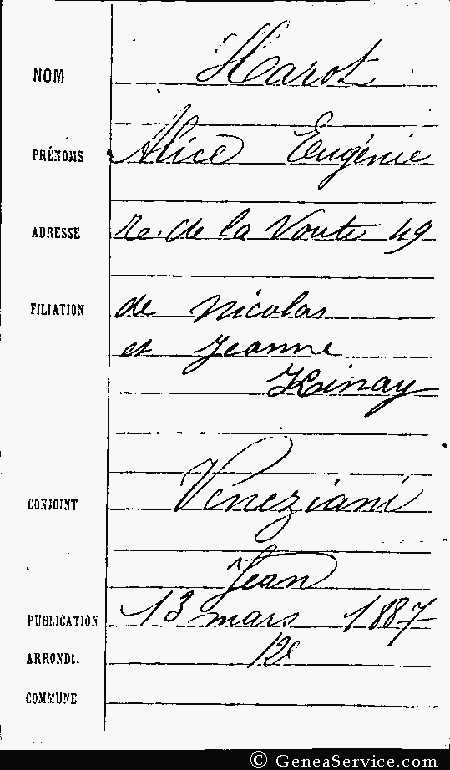 NOM Harot
PRÉNOMS Alice Eugénie
ADRESSE r. de la Voute 49
FILIATION de Nicolas
et Jeanne
Kinay
CONJOINT Veneziani
Jean
PUBLICATION 13 mars 1887
ARRONDt. 12e
COMMUNE
© GeneaService.com